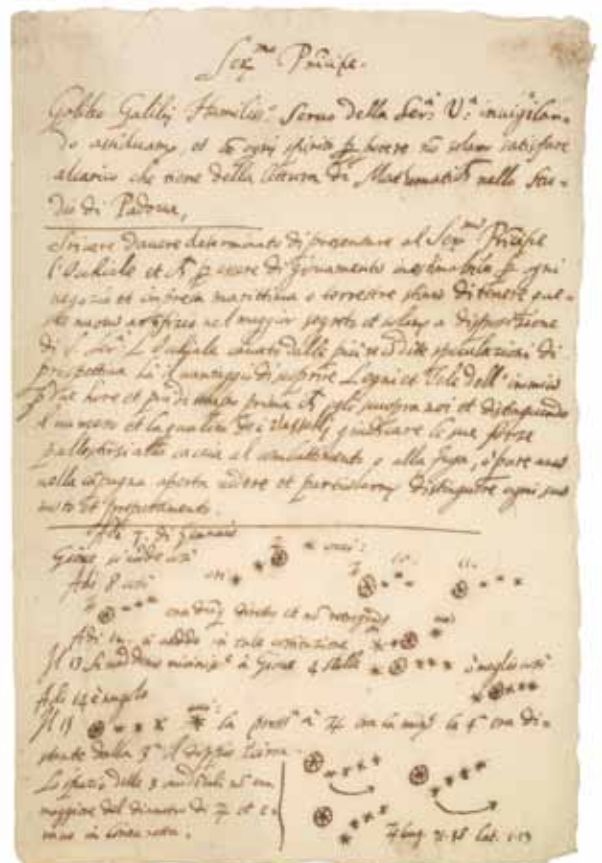 Ser.mo Principe.
Galileo Galilei Humiliss.o Servo della Ser.a V.a invigilan-
do assiduam., et cō ogni spirito p̄ potere nō solam satisfare
alcarico che tiene della lettura di Mathematich nello Stu-
dio di Padova,
Scrivere davere determinato di presentare al Ser.mo Principe
l'Occhiale et ch p̄ essere di giovamento inestimabile p̄ ogni
negozio et impresa marittima o terrestre stimo di tenere que-
sto nuovo artifizio nel maggior segreto et solam a disposizione
di S. Ser.a L'Occhiale cavato dalle piu recondite speculazioni di
prospettiva ha il vantaggio di scoprire Legni et Vele dell'inimico
p̄ due hore et piu di tempo prima ch egli scuopra noi et distinguendo
il numero et la qualita de i Vasselli giudicare le sue forze
pallestirsi alla caccia al combattimento o alla fuga, o pure anco
nella cāpagna aperta vedere et particolarm distinguere ogni suo
moto et preparamento.
Adi 7. di Gennaio
Giove si vede cosi
Adi 8 cosi
era dūq diretto et nō retrogrado
Adi 12. si vedde in tale costituzione
Il 13 si veddono vicinis.e à Giove 4 stelle ò meglio cosi
Adi 14 è nugolo
Il 15 la pross.a à ♃ era la min.e la 4.a era di-
stante dalla 3.a il doppio circa
Lo spazio delle 3 occidentali nō era
maggiore del diametro di ♃ et e-
rano in linea retta.
♃ long. 71.38 lat. 1.13